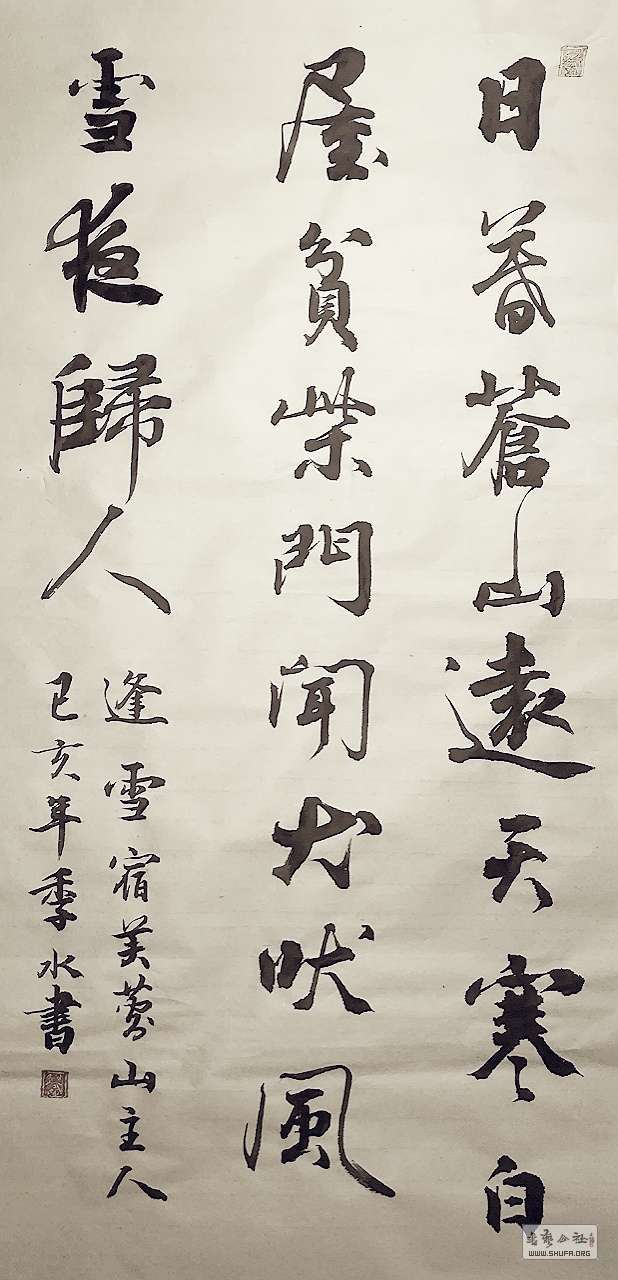 日暮蒼山遠天寒白
屋貧柴門聞犬吠風
雪夜歸人
逢雪宿芙蓉山主人
己亥年季水書
WWW.SHUFA.ORG